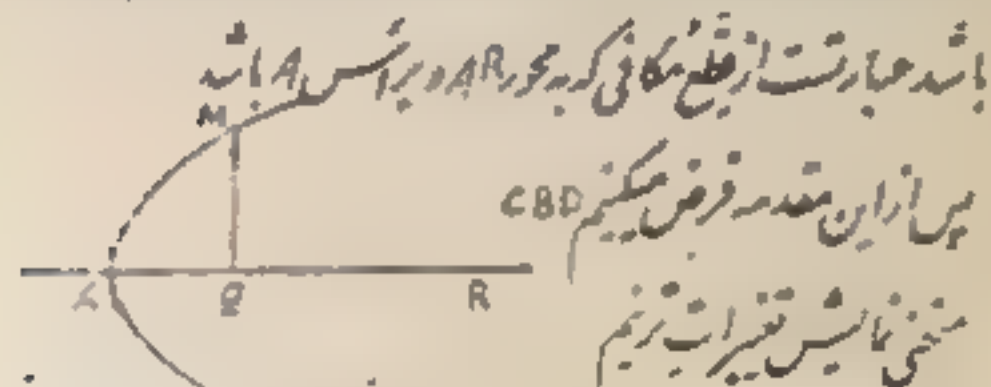 باشد عبارتست از قطع مکافی که بر محور AR و براس A باشد
M
پس از این مقدمه فرض میکنیم CBD
A Q R
منحنی نمایش تغییرات ژنیم